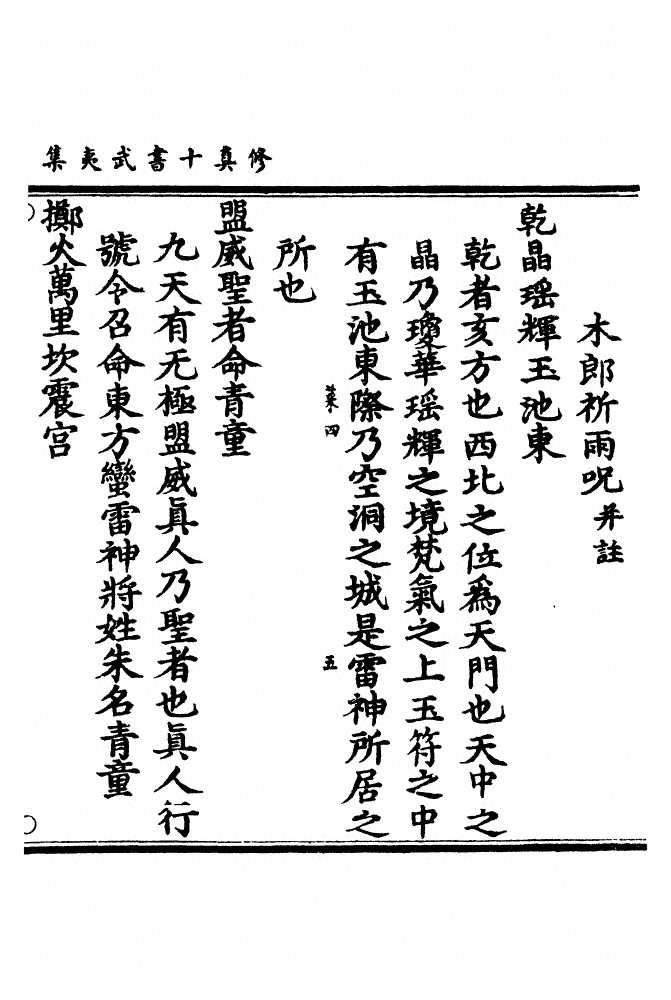 修真十書武夷集
木郎祈雨呪并註
乾晶瑶輝玉池東
乾者亥方也西北之位爲天門也天中之
晶乃瓊華瑶輝之境梵氣之上玉符之中
有玉池東際乃空洞之城是雷神所居之
菜四
五
所也
盟威聖者命青童
九天有无極盟威眞人乃聖者也眞人行
號令召命東方蠻雷神將姓朱名青童
擲火萬里坎震宫